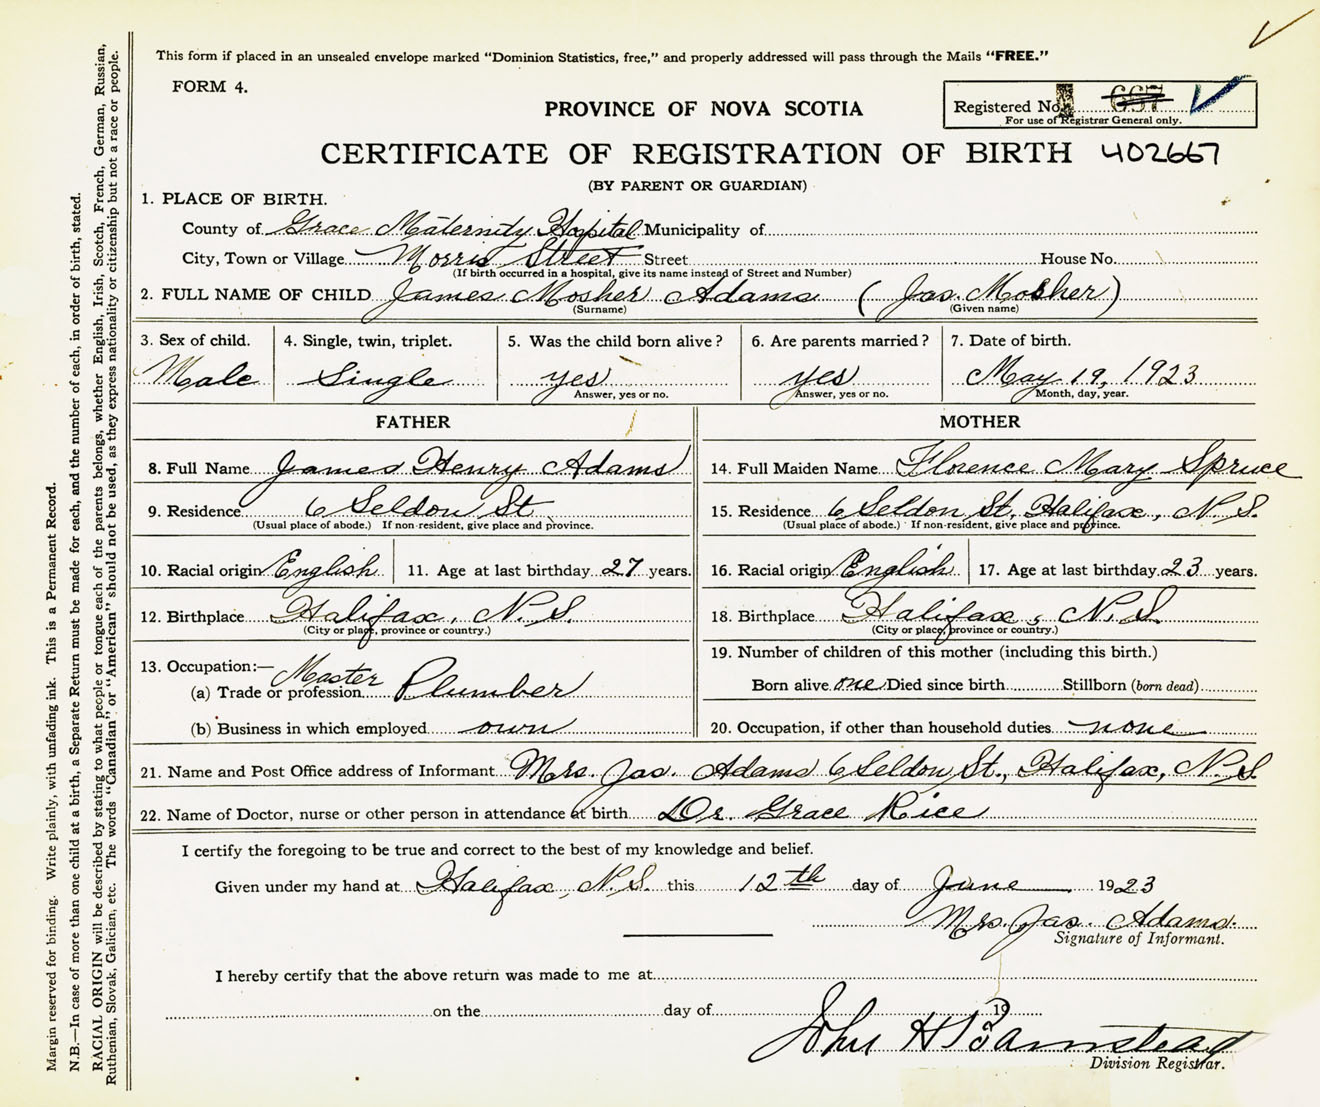 This form if placed in an unsealed envelope marked “Dominion Statistics, free,” and properly addressed will pass through the Mails “FREE.”
FORM 4.
Registered No. 667
For use of Registrar General only.
PROVINCE OF NOVA SCOTIA
CERTIFICATE OF REGISTRATION OF BIRTH 402667
(BY PARENT OR GUARDIAN)
1. PLACE OF BIRTH.
County of Grace Maternity Hospital Municipality of
City, Town or Village Morris Street Street House No.
(If birth occurred in a hospital, give its name instead of Street and Number)
2. FULL NAME OF CHILD James Mosher Adams (Jas. Mosher)
(Surname) (Given name)
3. Sex of child. 4. Single, twin, triplet. 5. Was the child born alive? 6. Are parents married? 7. Date of birth.
Male Single yes yes May 19, 1923
Answer, yes or no. Answer, yes or no. Month, day, year.
FATHER MOTHER
8. Full Name James Henry Adams 14. Full Maiden Name Florence Mary Spruce
9. Residence 6 Seldon St 15. Residence 6 Seldon St. Halifax, N.S.
(Usual place of abode.) If non-resident, give place and province. (Usual place of abode.) If non-resident, give place and province.
10. Racial origin English 11. Age at last birthday 27 years. 16. Racial origin English 17. Age at last birthday 23 years.
12. Birthplace Halifax, N.S. 18. Birthplace Halifax, N.S.
(City or place, province or country.) (City or place, province or country.)
13. Occupation:— 19. Number of children of this mother (including this birth.)
(a) Trade or profession Master Plumber Born alive one Died since birth Stillborn (born dead)
(b) Business in which employed own 20. Occupation, if other than household duties none
21. Name and Post Office address of Informant Mrs. Jas. Adams 6 Seldon St., Halifax, N.S.
22. Name of Doctor, nurse or other person in attendance at birth Dr. Grace Rice
I certify the foregoing to be true and correct to the best of my knowledge and belief.
Given under my hand at Halifax, N.S. this 12th day of June 1923
Mrs. Jas. Adams.
Signature of Informant.
I hereby certify that the above return was made to me at
on the day of 19
John H Barnstead
Division Registrar.
Margin reserved for binding. Write plainly, with unfading ink. This is a Permanent Record.
N.B.—In case of more than one child at a birth, a Separate Return must be made for each, and the number of each, in order of birth, stated.
RACIAL ORIGIN will be described by stating to what people or tongue each of the parents belongs, whether English, Irish, Scotch, French, German, Russian,
Ruthenian, Slovak, Galician, etc. The words “Canadian” or “American” should not be used, as they express nationality or citizenship but not a race or people.